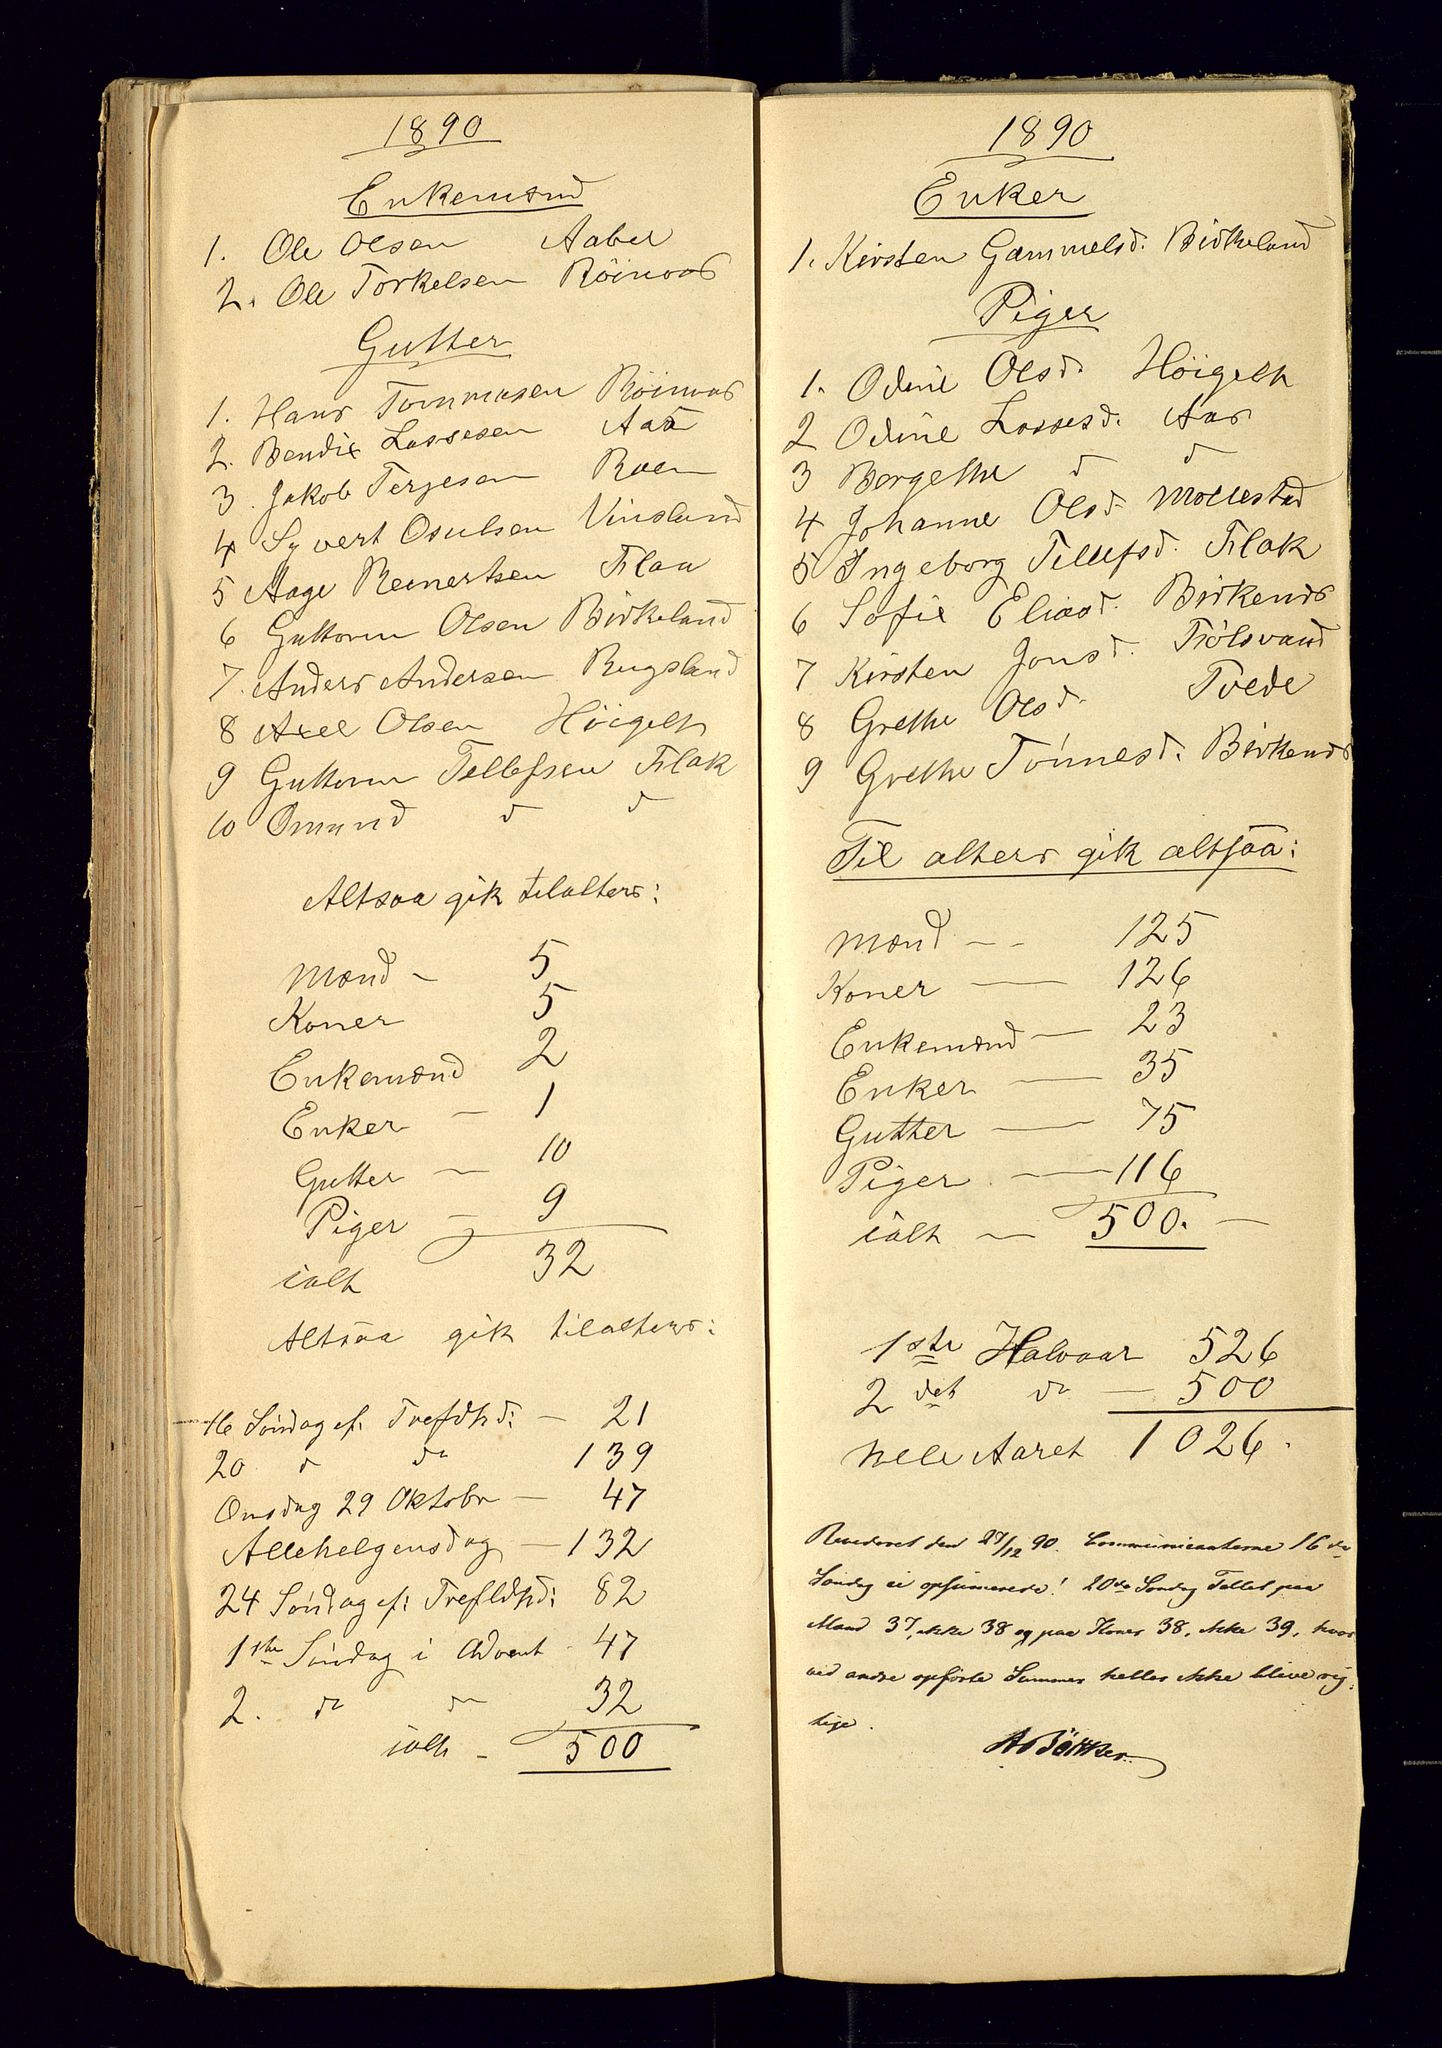 1890
Enkemænd
1. Ole Olsen Aabel
2. Ole Torkelsen Röinaas
Gutter
1. Hans Tommasen Röinaas
2. Bendix Lassesen Aas
3. Jakob Terjesen Roen
4 Syvert Osulsen Vinsland
5 Aage Reinertsen Flaa
6 Guttorm Olsen Birkeland
7. Anders Andersen Rugsland
8 Axel Olsen Höigelt
9 Guttorm Tellefsen Flak
10 Omund d d
Altsaa gik tilalters:
Mænd - 5
Koner 5
Enkemænd 2
Enker - 1
Gutter - 10
Piger - 9
ialt 32
Altsaa gik tilalters:
16 Söndag ef: Trefdhd: - 21
20 d do 139
Onsdag 29 Oktobr - 47
Allehelgensdag - 132
24 Söndag ef: Trefldhd: 82
1ste Söndag i Advent - 47
2. do do 32
ialt - 500
1890
Enker
1. Kirsten Gammelsd. Birkeland
Piger
1. Odine Olsd. Höigelt
2 Odine Lassesd. Aas
3 Bergethe d d
4 Johanne Olsd. Mollestad
5 Ingeborg Tellefsd. Flak
6 Sofie Eliasd. Birkenes
7 Kirsten Jonsd. Tjölsvand
8 Grethe Olsd. Tvede
9 Grethe Tönnesd. Birkenes
Til alters gik altsaa:
Mænd - - 125
Koner - 126
Enkemænd - 23
Enker - 35
Gutter - 75
Piger - 116
ialt - 500. -
1ste Halvaar 526
2det do - 500
hele Aaret 1026.
Revideret den 27/12 90. Communicanterne 16de
Søndag ei opsumerede! 20de Søndag Tallet paa
Mænd 37, ikke 38 og paa Koner 38, ikke 39, hvor
ved andre opførte Summer heller ikke blive rig-
tige.